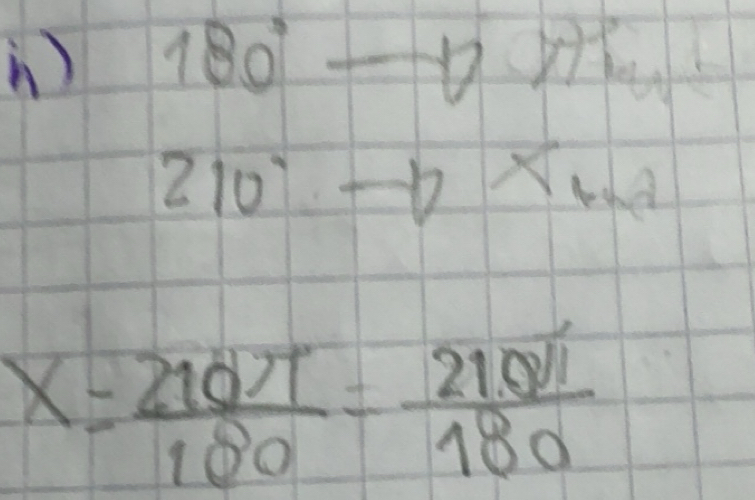 h) 180° → π rad
210° → x rad
X = 210π/180 = 210π/180